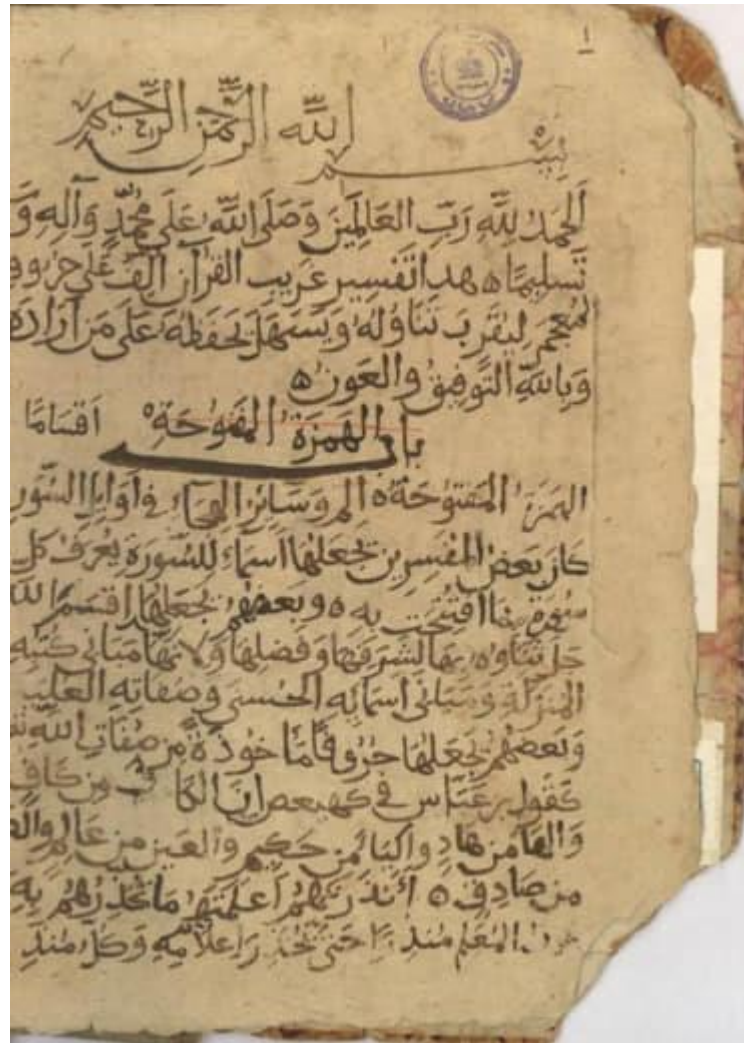 ١
بِسْمِ اللَّهِ الرَّحْمَنِ الرَّحِيمِ
الحَمْدُ لِلَّهِ رَبِّ العَالَمِينَ وَصَلَّى اللَّهُ عَلَى مُحَمَّدٍ وَآلِهِ وَ
تَسْلِيمًا ه هذا تَفْسِير غَرِيب القُرْآنِ أُلِّفَ عَلَى حُرُوفِ
المُعْجَمِ لِيَقْرُبَ تَنَاوُلُهُ وَيَسْهُلَ تَحَفُّظُهُ عَلَى مَنْ أَرَادَهُ
وَبِاللَّهِ التَّوْفِيقُ وَالعَوْنُ ه
باب الهَمْزَةِ المَفْتُوحَةِ ه أقسامًا
الهمزة المَفْتُوحَة ه الم وَسَائِر الهِجَاءِ فِي أَوَائِلِ السُّوَرِ
كانَ بَعْضُ المُفَسِّرِينَ يَجْعَلُهَا أَسْمَاءً لِلسُّورَةِ يُعْرَفُ كل
سُورَةٍ بِمَا افْتُتِحَتْ بِهِ ه وَبَعْضُهُمْ يَجْعَلُهَا أقسم الله
بها لِشَرَفِهَا وَفَضْلِهَا وَلِأَنَّهَا مَبَانِي كُتُبِهِ
المنزلة وَمَبَانِي أَسْمَائِهِ الحُسْنَى وَصِفَاتِهِ العُليَا
وَبَعْضُهُمْ يَجْعَلُهَا حُرُوفًا مَأْخُوذَةً مِنْ صِفَاتِ اللَّهِ
كَقَوْلِ ابن عَبَّاس فِي كهيعص إِنَّ الكا ف مِن كَافٍ
وَالهَا مِن هَادٍ وَاليَاءَ مِن حَكِيمٍ وَالعَيْنَ مِن عَالِمٍ وَالص
مِن صَادِقٍ ه أَنْذَرْتَهُمْ أَعْلَمْتَهُمْ مَا تُحَذِّرُهُمْ بِهِ
المُعْلِمُ مُنْذِرًا حَتَّى يُحَذِّرَ بِإِعْلَامِهِ وَكُلُّ مُنْذِرٍ